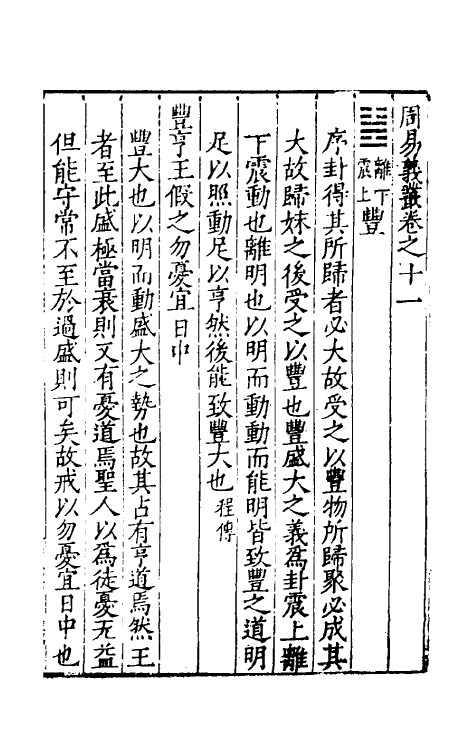 周易義叢卷之十一
䷶離下震上豐
序卦得其所歸者必大故受之以豐物所歸聚必成其
大故歸妹之後受之以豐也豐盛大之義爲卦震上離
下震動也離明也以明而動動而能明皆致豐之道明
足以照動足以亨然後能致豐大也程傳
豐亨王假之勿憂宜日中
豐大也以明而動盛大之勢也故其占有亨道焉然王
者至此盛極當衰則又有憂道焉聖人以爲徒憂无益
但能守常不至於過盛則可矣故戒以勿憂宜日中也